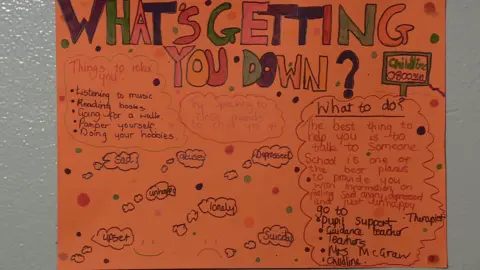 WHAT'S GETTING
YOU DOWN?
Childline
Things to relax
you
• Listening to music
• Reading books
• Going for a walk
• Pamper yourself
• Doing your hobbies
Try speaking to
What to do?
The best thing to
help you is to
talk to someone
School is one of
the best places
to provide you
with information on
feeling sad, angry, depressed
and just unhappy
go to
• pupil support • Therapist
• Guidance teacher
• Teachers
• Mrs McGraw
• Childline
Sad
Depressed
unhappy
lonely
upset
Suicidal